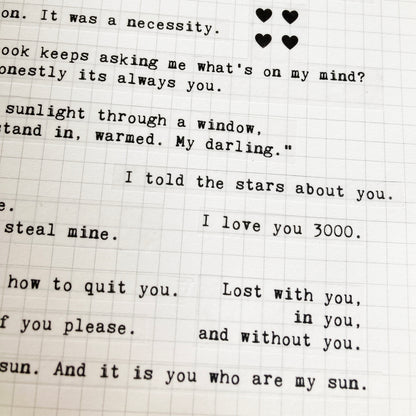 on. It was a necessity.
ook keeps asking me what's on my mind?
onestly its always you.
sunlight through a window,
tand in, warmed. My darling."
I told the stars about you.
e.
steal mine.
I love you 3000.
how to quit you.
f you please.
Lost with you,
in you,
and without you.
sun. And it is you who are my sun.